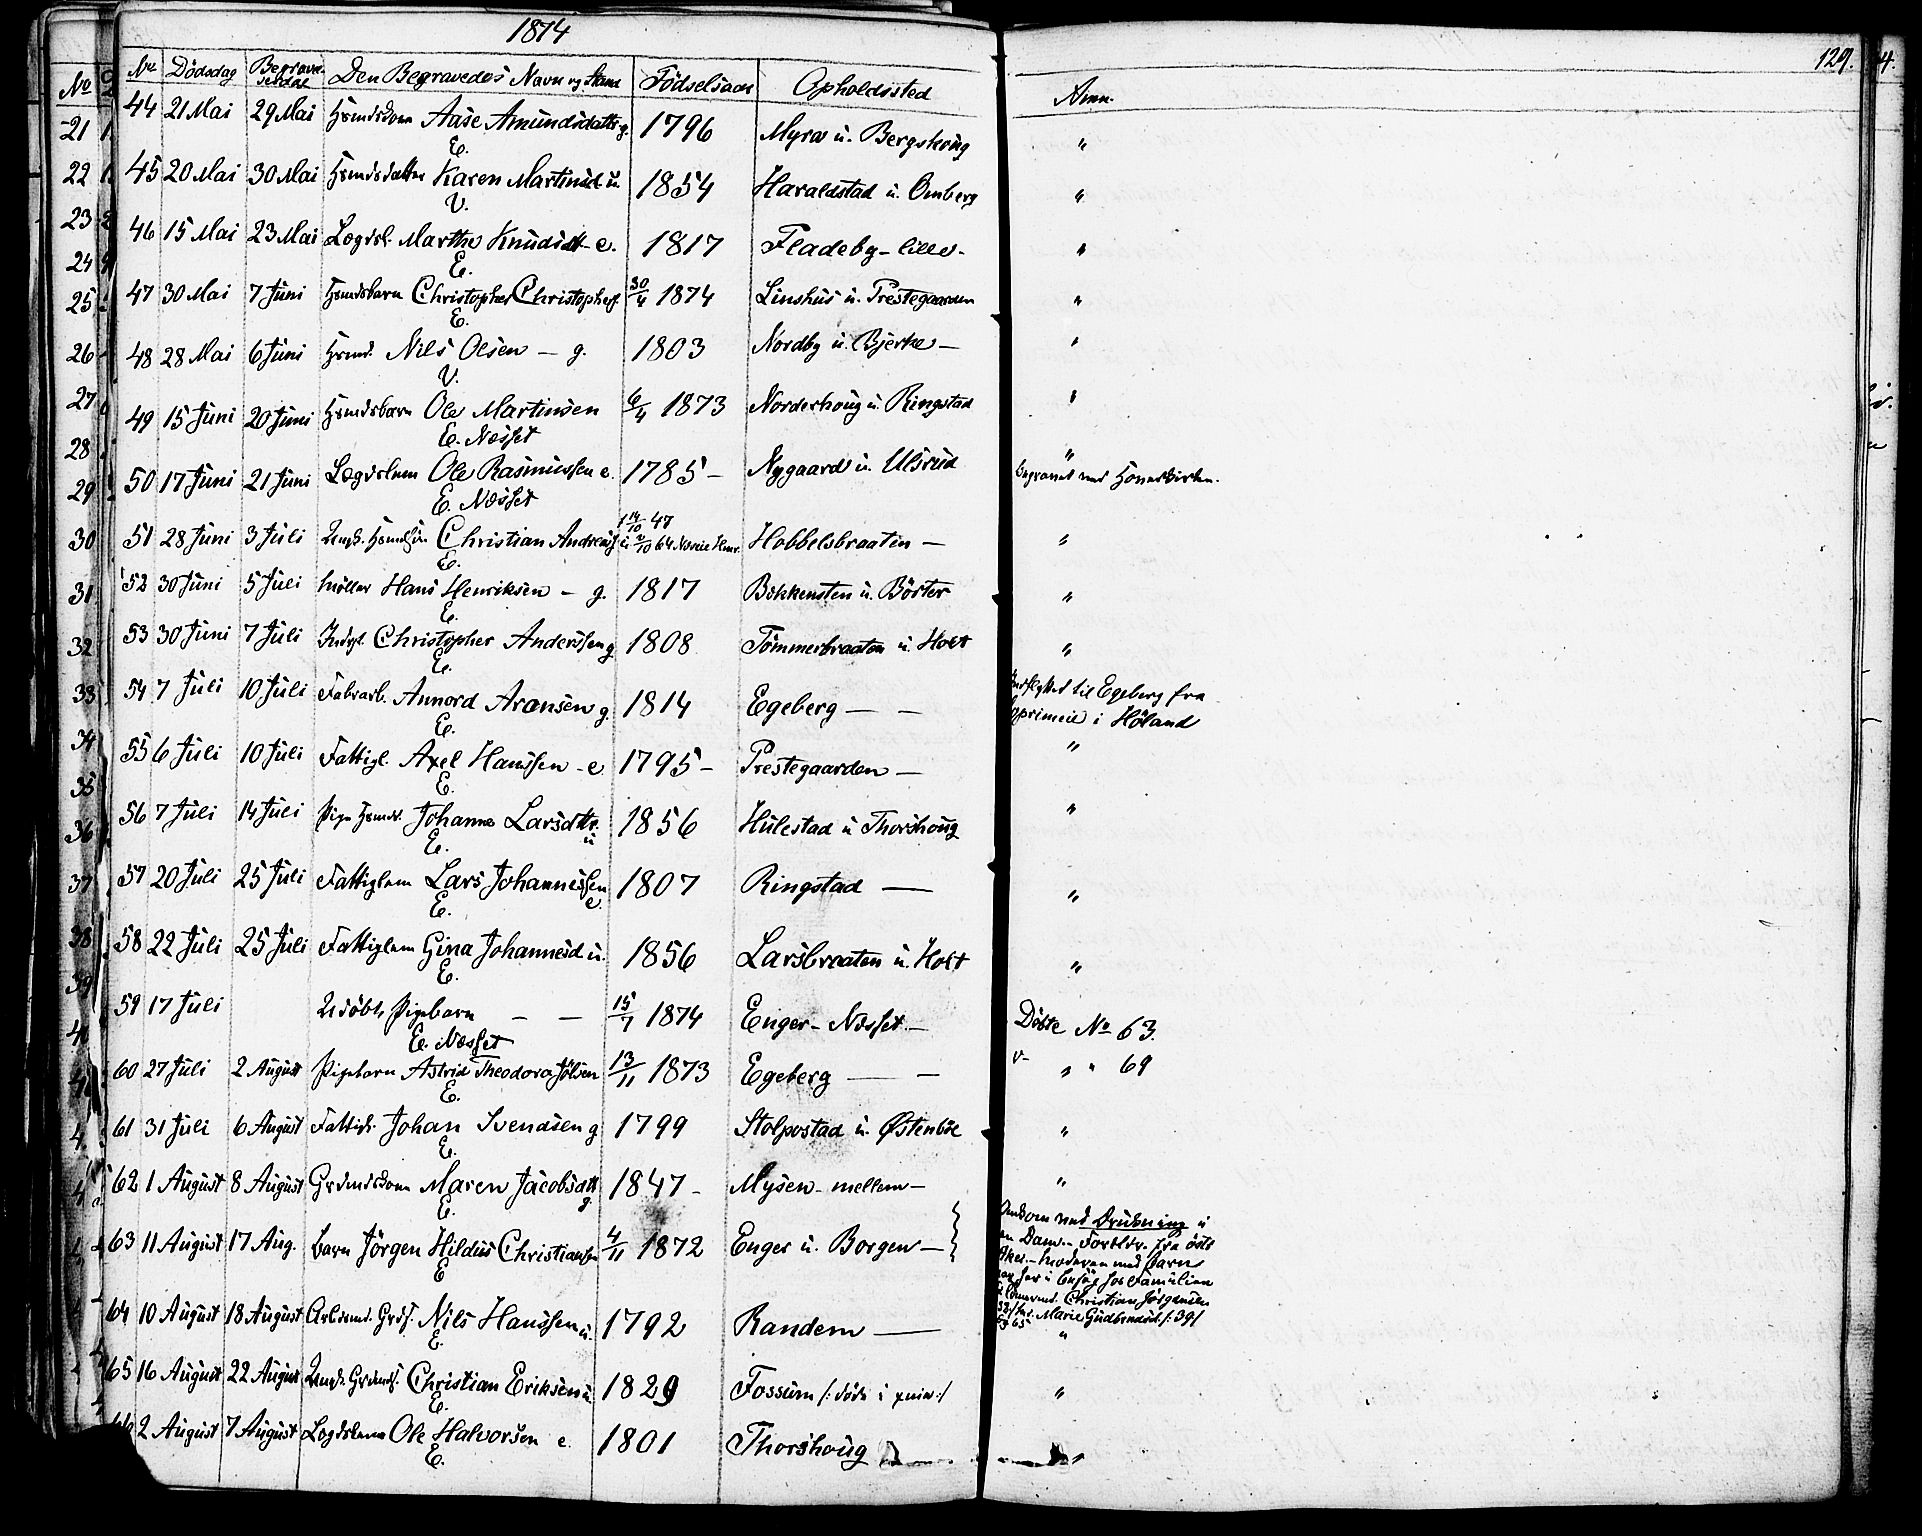 1874
129.
4.
No Dødsdag Begravelsesdag Den Begravedes Navn og Stand Fødselsaar Opholdssted Anm.
44 21 Mai 29 Mai Hsmdskone Aase Amundsdatter g. 1796 Myra u. Bergskoug "
E.
45 20 Mai 30 Mai Hsmdsdatter Karen Martinsd. u. 1854 Haraldstad u. Omberg "
V.
46 15 Mai 23 Mai Lægdsl. Marthe Knudsdtt e. 1817 Fladeby-lille- "
E.
47 30 Mai 7 Juni Hsmdsbarn Christopher Christophers. 30/4 1874 Linshus u. Prestegaarden "
E.
48 28 Mai 6 Juni Hsmd. Nils Olsen - g. 1803 Nordby u. Bjerke - "
V.
49 15 Juni 20 Juni Hsmdsbarn Ole Martinsen 6/4 1873 Norderhoug u. Ringstad "
E. Næsset
50 17 Juni 21 Juni Lægdslem Ole Rasmussen e. 1785 - Nygaard u. Ulsrud "
begravet ved
E. Næsset
51 28 Juni 3 Juli Ungk. Christian Andreas 14/10 47 Hobbelsbraaten - "
E.
52 30 Juni 5 Juli Møller Hans Henriksen - g. 1817 Bakkensten u. Börter "
E.
53 30 Juni 7 Juli Indgl. Christopher Anderssen g. 1808 Tömmerbraaten u. Holt "
E.
54 7 Juli 10 Juli Fabrarb. Annord Aronsen g. 1814 Egeberg - - Indflyttet til Egeberg fra
i Höland
E.
55 6 Juli 10 Juli Fattigl. Axel Hanssen - e 1795 - Prestegaarden - "
E.
56 7 Juli 14 Juli Pige Hsmds. Johanne Larsdtr. u 1856 Hulestad u Thorshoug "
E.
57 20 Juli 25 Juli Fattiglem Lars Johannessen e. 1807 Ringstad - "
E.
58 22 Juli 25 Juli Fattiglem Gina Johannesd u. 1856 Larsbraaten u. Holt "
E.
59 17 Juli Udöbt Pigebarn - - 15/7 1874 Enger - Næsset - Döbte No 63.
E. Næsset
60 27 Juli 2 August Pigebarn Astrid Theodora Jölsen 13/11 1873 Egeberg - - " " 69
E.
61 31 Juli 6 August Johan Svendsen g 1799 Stolpestad u. Østenbøe "
E.
62 1 August 8 August Grdmdskone Maren Jacobsdtt g 1847 - Mysen - mellem - "
E.
63 11 August 17 Aug. Barn Jörgen Hildus Christiansen 4/11 1872 Enger u. Borgen - Omkom ved Drukning i
en Dam. - Forældr. fra östr
Aker. - Moderen med Barn
var her i Besøg hos Familien
Christian Jörgensen
Marie Gudbrandsd. /: 39/
E
64 10 August 18 August Arbsmd. Nils Hanssen u. 1792 Randem - "
E.
65 16 August 22 August Ungk. Christian Eriksen u 1829 Fossum /: döde i :/ "
E.
66 2 August 7 August Lægdslem Ole Halvorsen e. 1801 Thorshoug "
E.
No
21
22
23
24
25
26
27
28
29
30
31
32
33
34
35
36
37
38
39